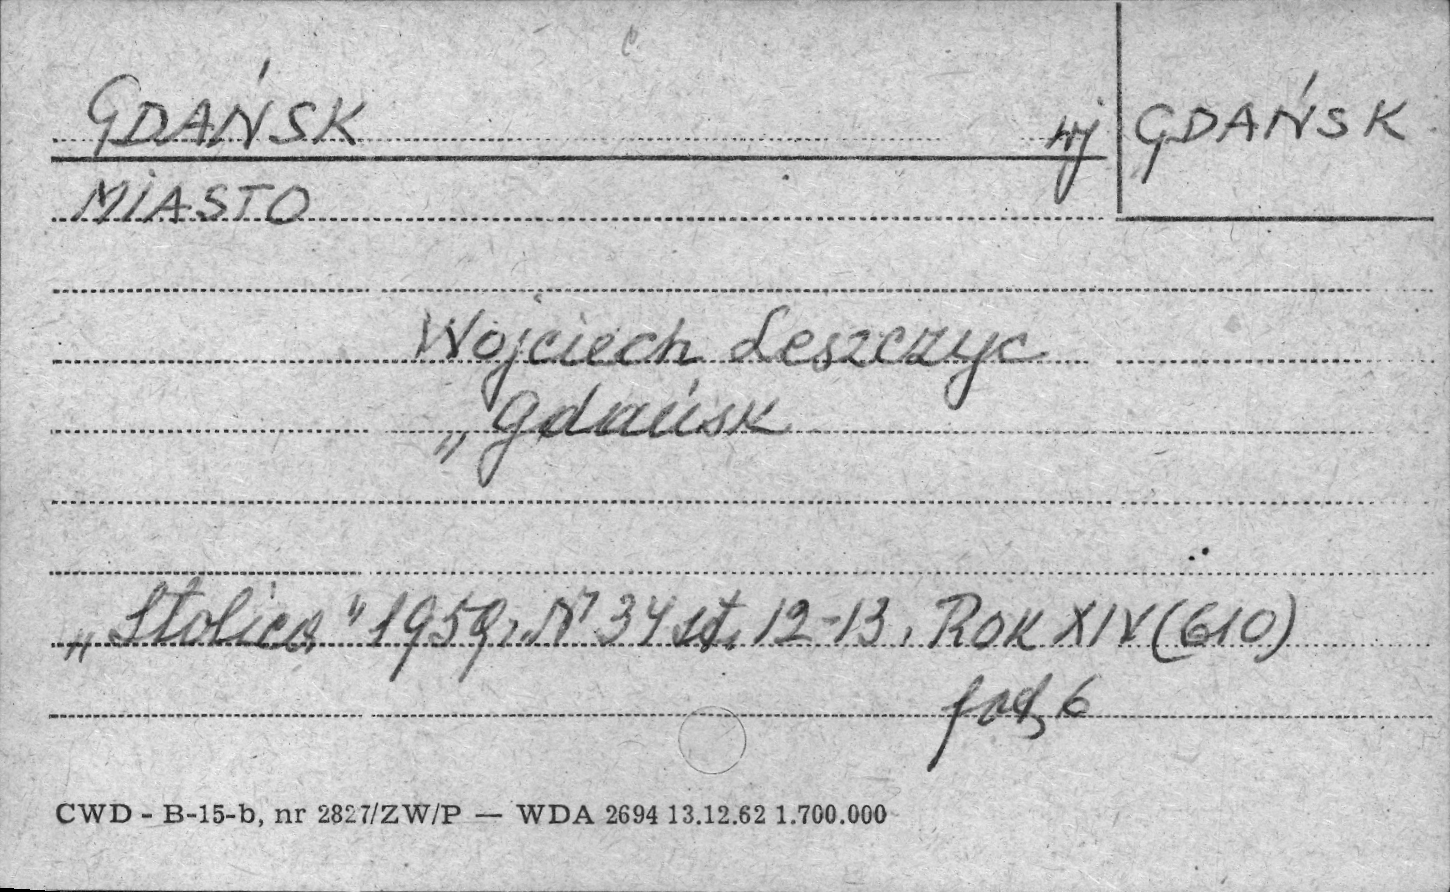 GDAŃSK wj GDAŃSK
MIASTO
Wojciech Leszczyc
„Gdańsk
„Stolica" 1959, N 34 st. 12-13, ROK XIV (610)
fot, 6
CWD - B-15-b, nr 2827/ZW/P — WDA 2694 13.12.62 1.700.000